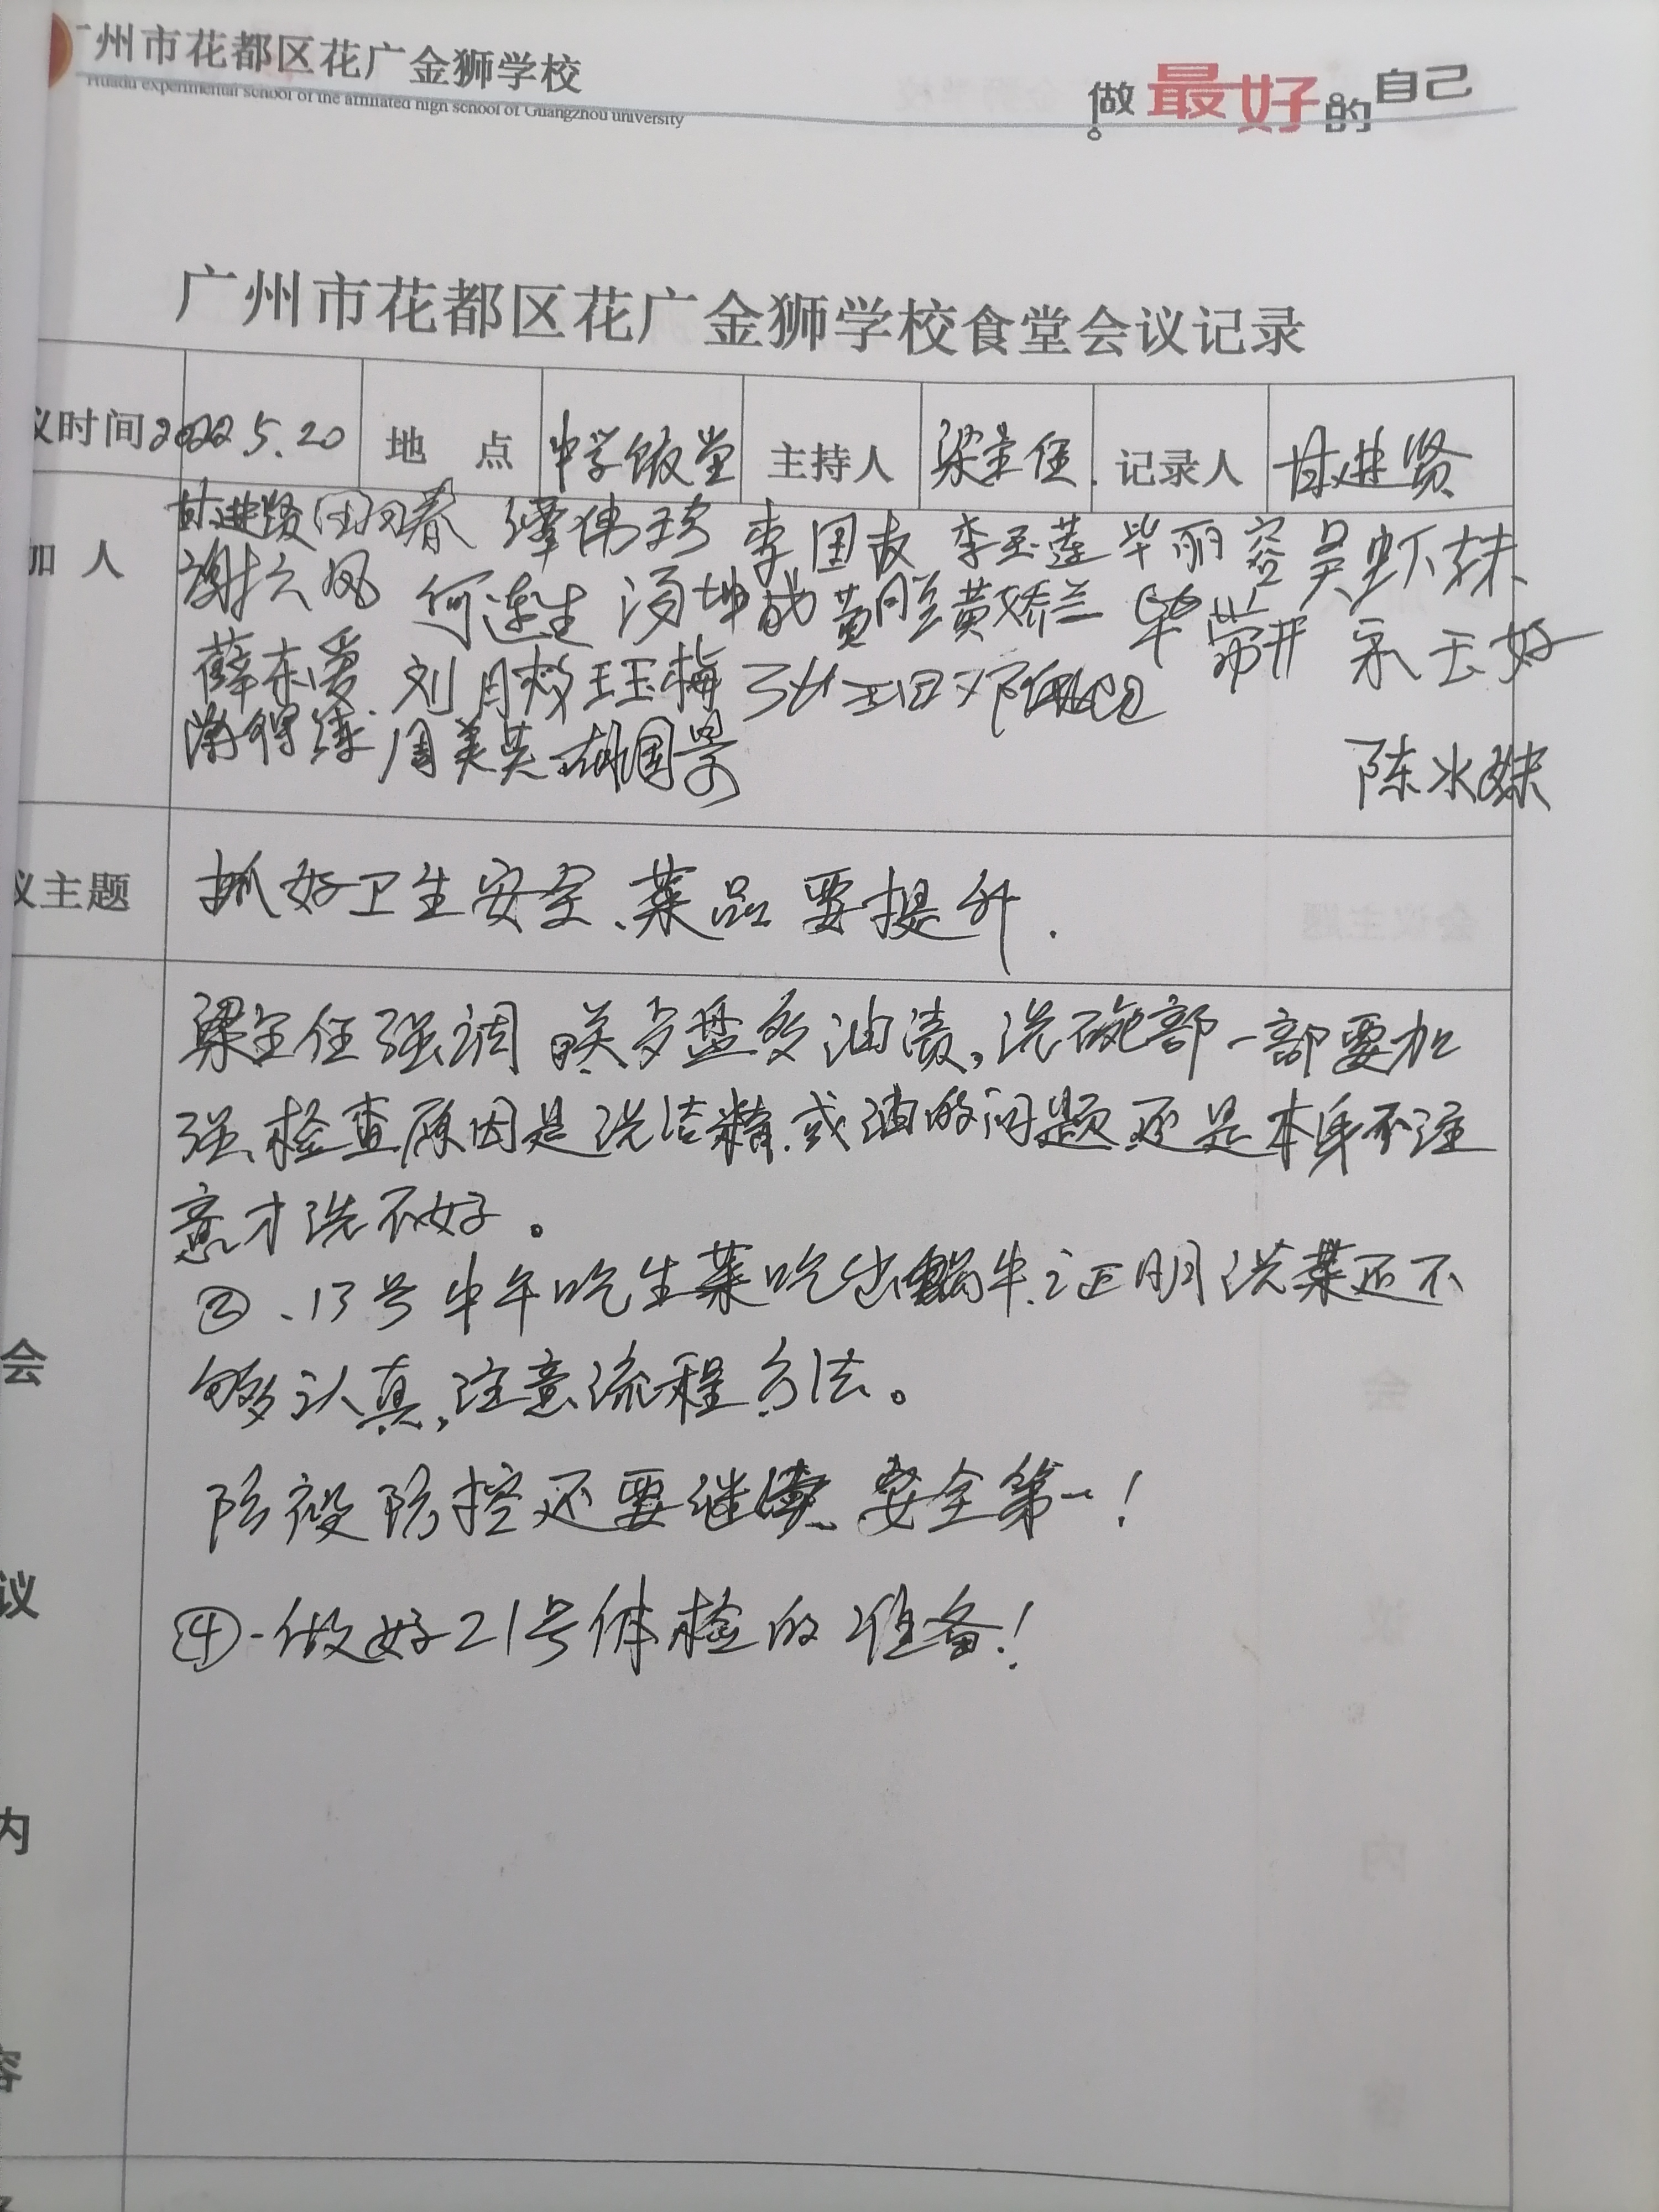 广州市花都区花广金狮学校
Huadu experimental school of the affiliated high school of Guangzhou university
做最好的自己
广州市花都区花广金狮学校食堂会议记录
议时间 2022.5.20 地 点 中学饭堂 主持人 梁主任. 记录人 甘进贤
加 人
甘进贤 田月春 谭伟珍 李国友 李玉莲 毕丽容 吴虾妹
何连生 汤坤成 黄娇兰 毕带开
薛东爱 刘月 王玉梅 玉好
周美英 胡国景 陈水妹
议主题 抓好卫生安全、菜品要提升.
梁主任强调 多盘多油渍,洗碗部一部要加
强、检查原因是洗洁精.或油的问题还是本身不注
意才洗不好。
②、17号中午吃生菜吃出蜗牛.证明洗菜还不
够认真,注意流程方法。
防疫防控还要继续、安全第一!
④-做好21号体检的准备!
会
议
内
容